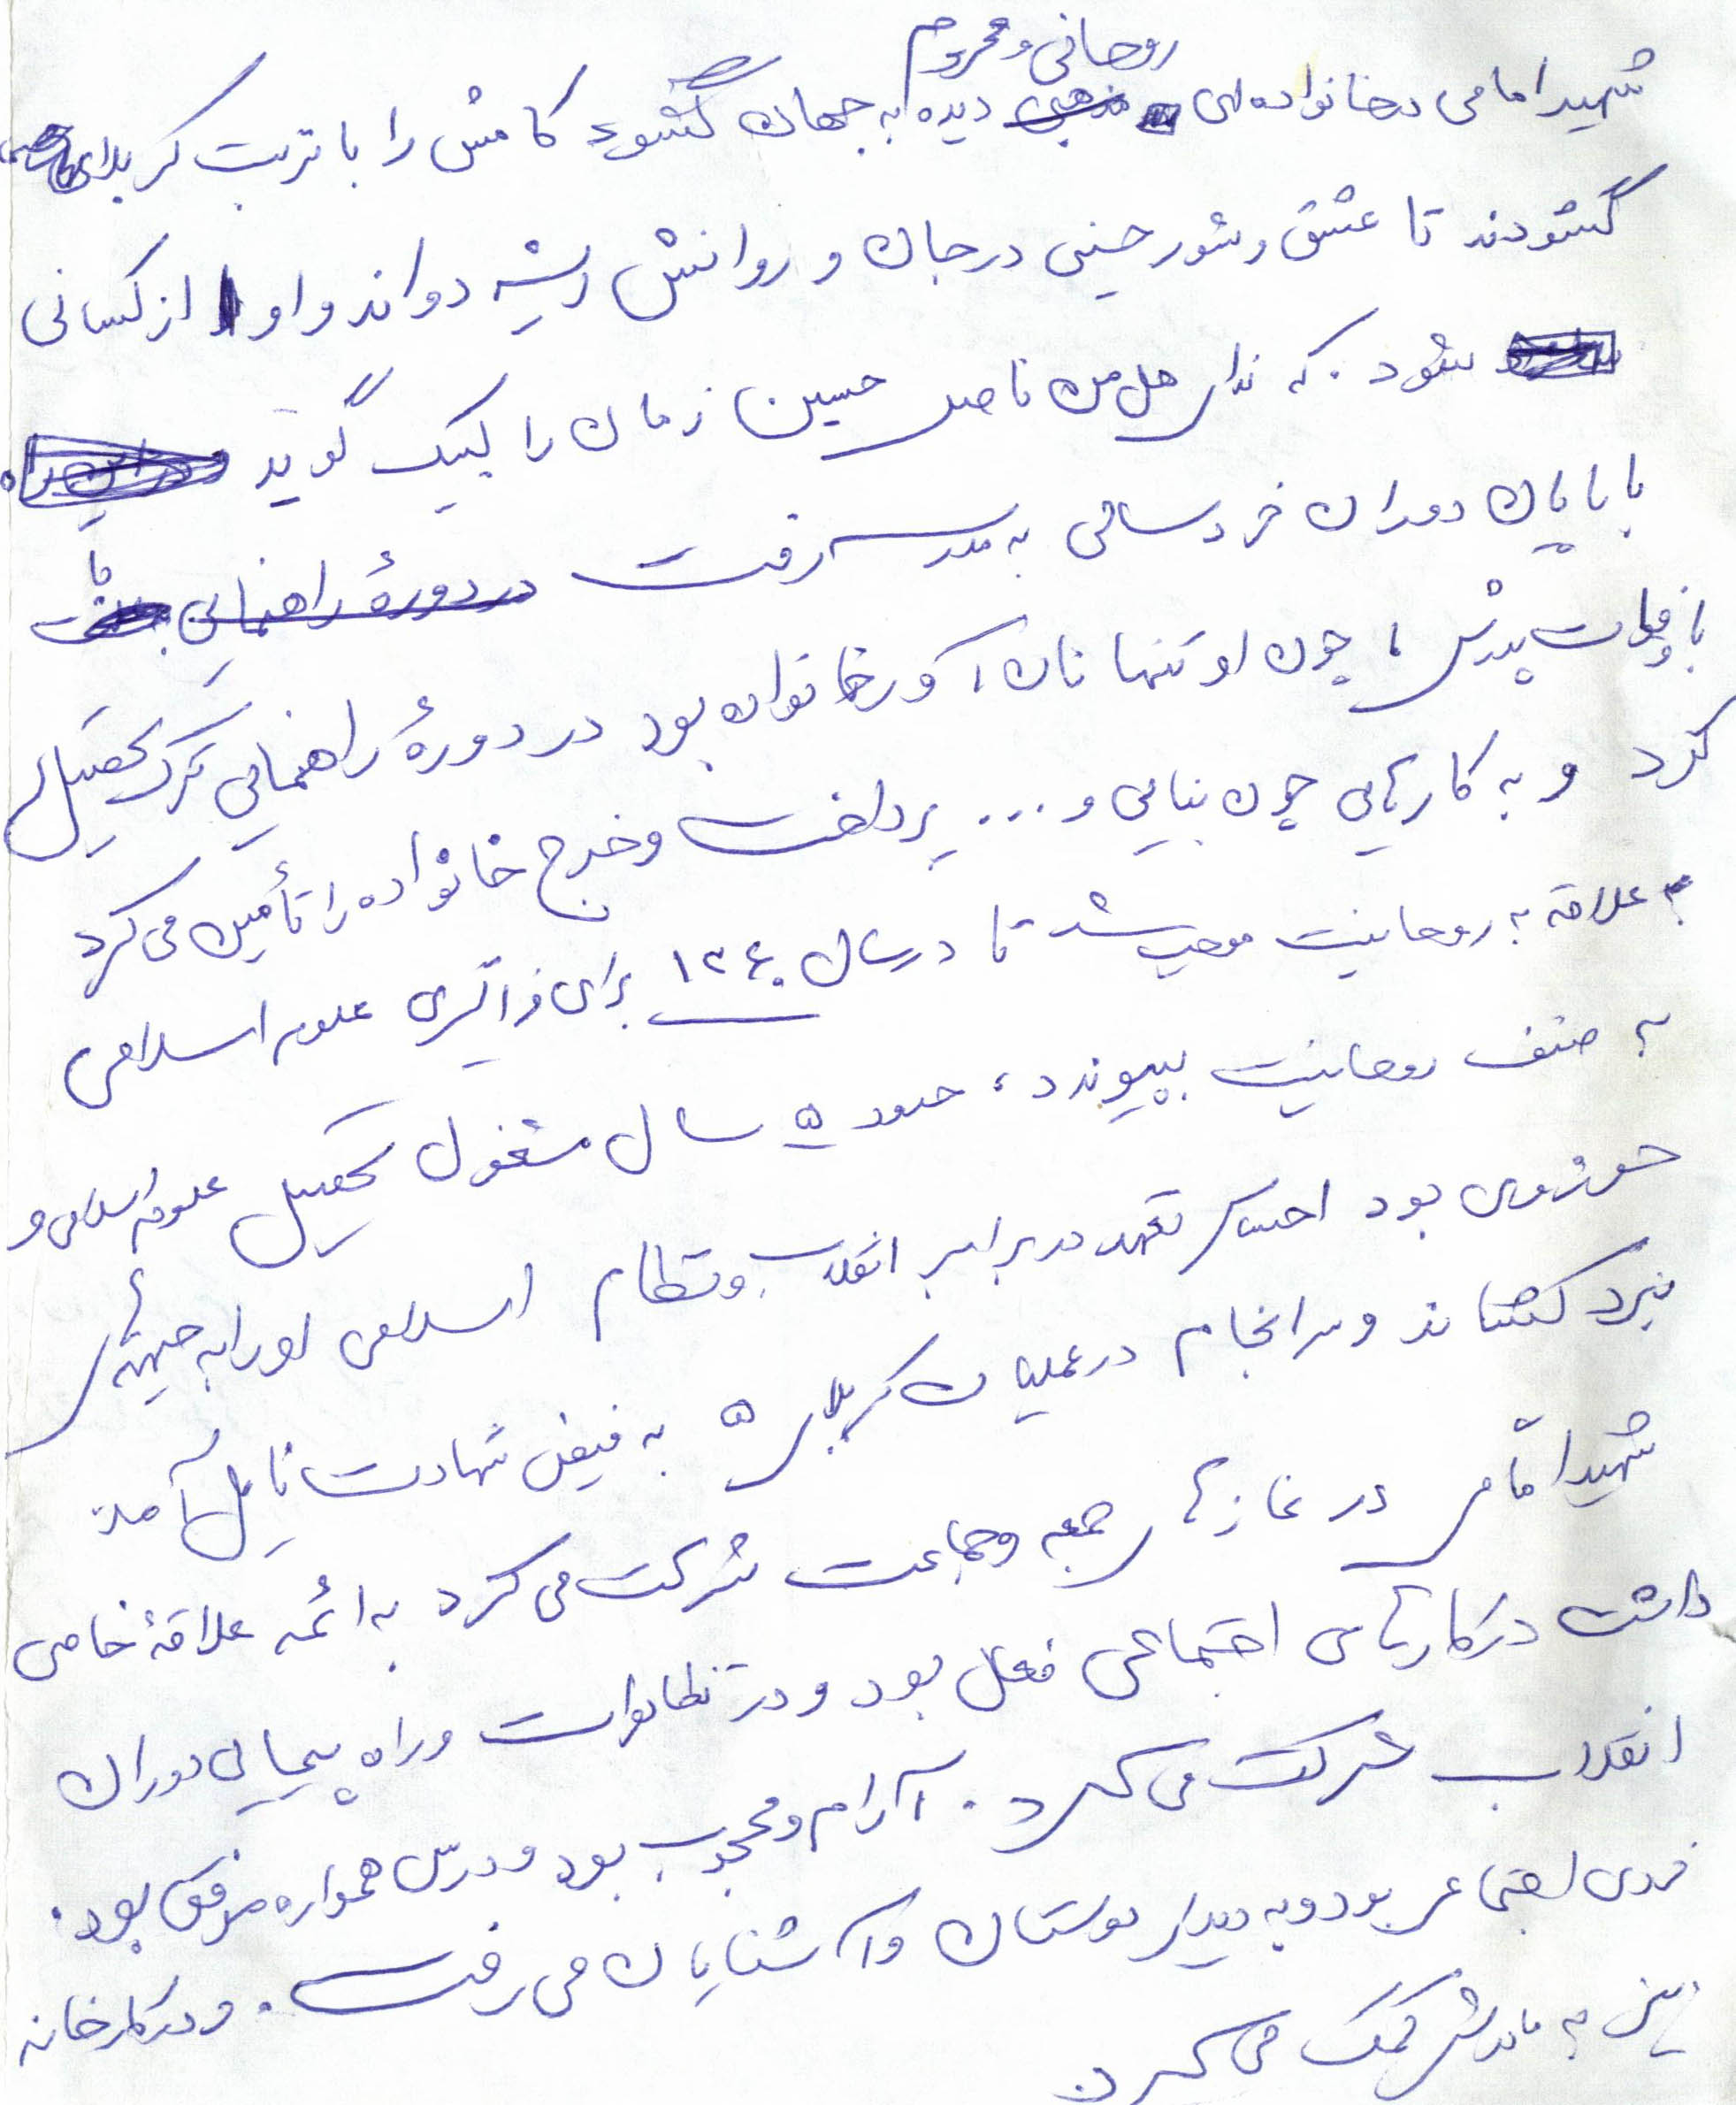 روحانی و محروم
شهید امامی در خانواده‌ای مذهبی دیده به جهان گشود کامش را با تربت کربلای
گشودند تا عشق و شور حسینی در جان و روانش ریشه دواند و او از کسانی
شود. که ندای هل من ناصر حسین زمان را لبیک گوید
با پایان دوران خردسالی به مدرسه رفت در دورهٔ راهنمایی
با وفات پدرش، چون او تنها نان آور خانواده بود در دورهٔ راهنمایی ترک تحصیل
کرد و به کارهایی چون بنایی و ... پرداخت و خرج خانواده را تأمین می کرد
علاقه به روحانیت موجب شد تا در سال ۱۳۶۰ برای فراگیری علوم اسلامی
به صنف روحانیت بپیوندد، حدود ۵ سال مشغول تحصیل علوم اسلامی و
حوزوی بود احساس تعهد در برابر انقلاب و نظام اسلامی او را به جبهه های
نبرد کشاند و سرانجام در عملیات کربلای ۵ به فیض شهادت نایل آمد
شهید امامی در نمازهای جمعه و جماعت شرکت می کرد به ائمه علاقهٔ خاصی
داشت در کارهای اجتماعی فعال بود و در تظاهرات و راه پیمایی دوران
انقلاب شرکت می کرد. آرام و محجوب بود و درس همواره موفق بود.
فردی اجتماعی بود و به دیدار دوستان و آشنایان می رفت. و در کار خانه
نیز به مادرش کمک می کرد